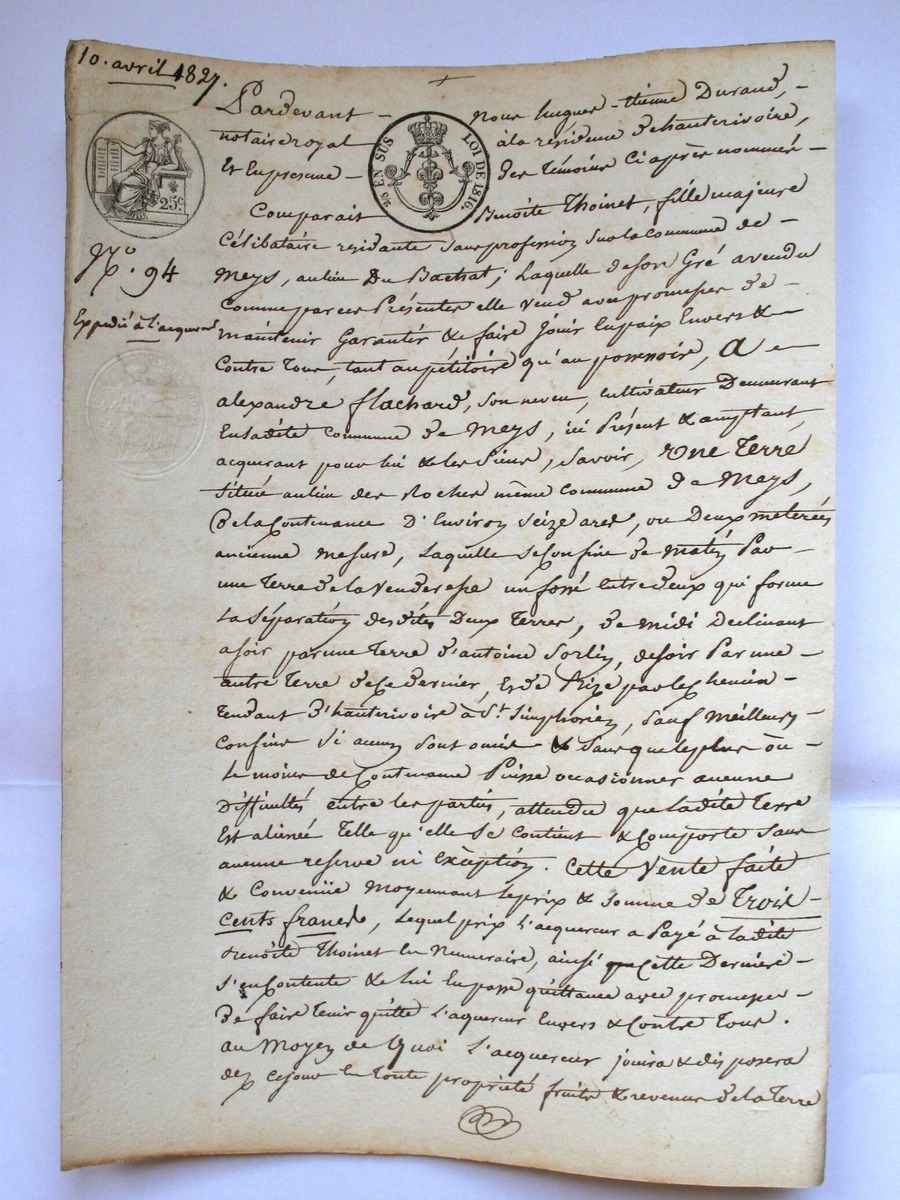 10. avril 1827.
Pardevant nous hugues-étienne Durand,
notaire royal à la résidence de hauterivoire,
Et En présence des Témoins Ci après nommés
2/5 EN SUS LOI DE 1816.
25c.
Comparait Benoîte Thoinet, fille majeure
Célibataire résidante sans profession sur la commune de
Meys, au lieu Du Bachat; Laquelle de son Gré a vendu
Comme par ces Présentes elle Vend avec promesses de
maintenir Garantir & faire Jouir En paix Envers &
Contre Tous, tant au pétitoire qu'au possessoire, A
alexandre flachard, son neveu, cultivateur Demeurant
En ladite commune de Meys, ici Présent & acceptant,
acquerant pour lui & les Siens, Savoir, Une Terre
Située au lieu des Rochers même commune de Meys,
De la Contenance D'Environ Seize ares, ou Deux meterées
ancienne mesure, Laquelle se Confine de matin Par
une Terre de la Venderesse un fossé Entre deux qui forme
La Séparation desdites Deux Terres, de midi Declinant
a soir par une Terre d'antoine Sorlin, de soir Par une
autre Terre de Ce dernier, Et de Bize par le Chemin
Tendant d'hauterivoire à St. Simphorien, Sauf Meilleurs
Confins Si aucuns sont omis & Sans que le plus ou
Le moins de Contenance Puisse occasionner aucune
Difficultés entre les parties, attendu que Ladite Terre
Est alienée Telle qu'elle se Contient & Comporte Sans
aucune reserve ni Exception. Cette Vente faite
& Convenüe Moyennant le prix & Somme de Trois
Cents francs, Lequel prix L'acquereur a Payé à Ladite
Benoîte Thoinet En Numeraire, ainsi que Cette Derniere
S'en Contente & lui En passe quittance avec promesses
De faire Tenir quitte L'aquereur Envers & Contre Tous.
au Moyen de Quoi L'acquereur jouira & disposera
dez ce jour En Toute propriété fruits & revenus de la Terre
No. 94
Expedié à l'acquereur